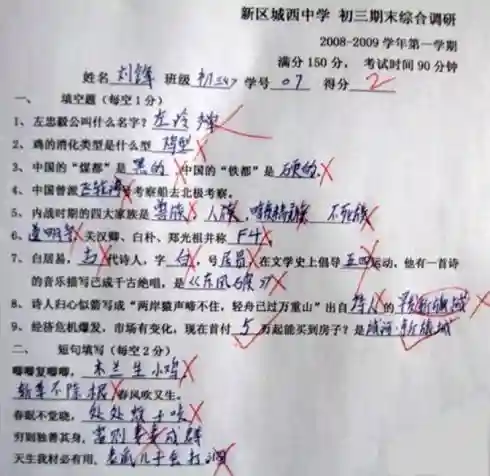 新区城西中学 初三期末综合调研
2008-2009 学年第一学期
满分 150 分， 考试时间 90 分钟
姓名 刘锋 班级 初三 学号 07 得分 2
一、 填空题（每空 1 分）
1、左忠毅公叫什么名字？左冷禅
2、鸡的消化类型是什么型
3、中国的“煤都”是 黑的 中国的“铁都”是 硬的
4、中国曾派 号考察船去北极考察。
5、内战时期的四大家族是 兽族、人族、暗夜精灵族 不死族
6、道明寺、关汉卿、白朴、郑光祖并称 F4
7、白居易， 代诗人，字 白，号 居易 在文学史上倡导 五四 运动，他有一首诗
的音乐描写已成千古绝唱，是《东风破》
8、诗人归心似箭写成“两岸猿声啼不住，轻舟已过万重山”出自 诗人 的
9、经济危机爆发，市场有变化，现在首付 5 万起能买到房子？是
二、 短句填写（每空 2 分）
唧唧复唧唧， 木兰生小鸡
斩草不除根 春风吹又生。
春眠不觉晓， 处处蚊子咬
穷则独善其身， 富则妻妾成群
天生我材必有用，